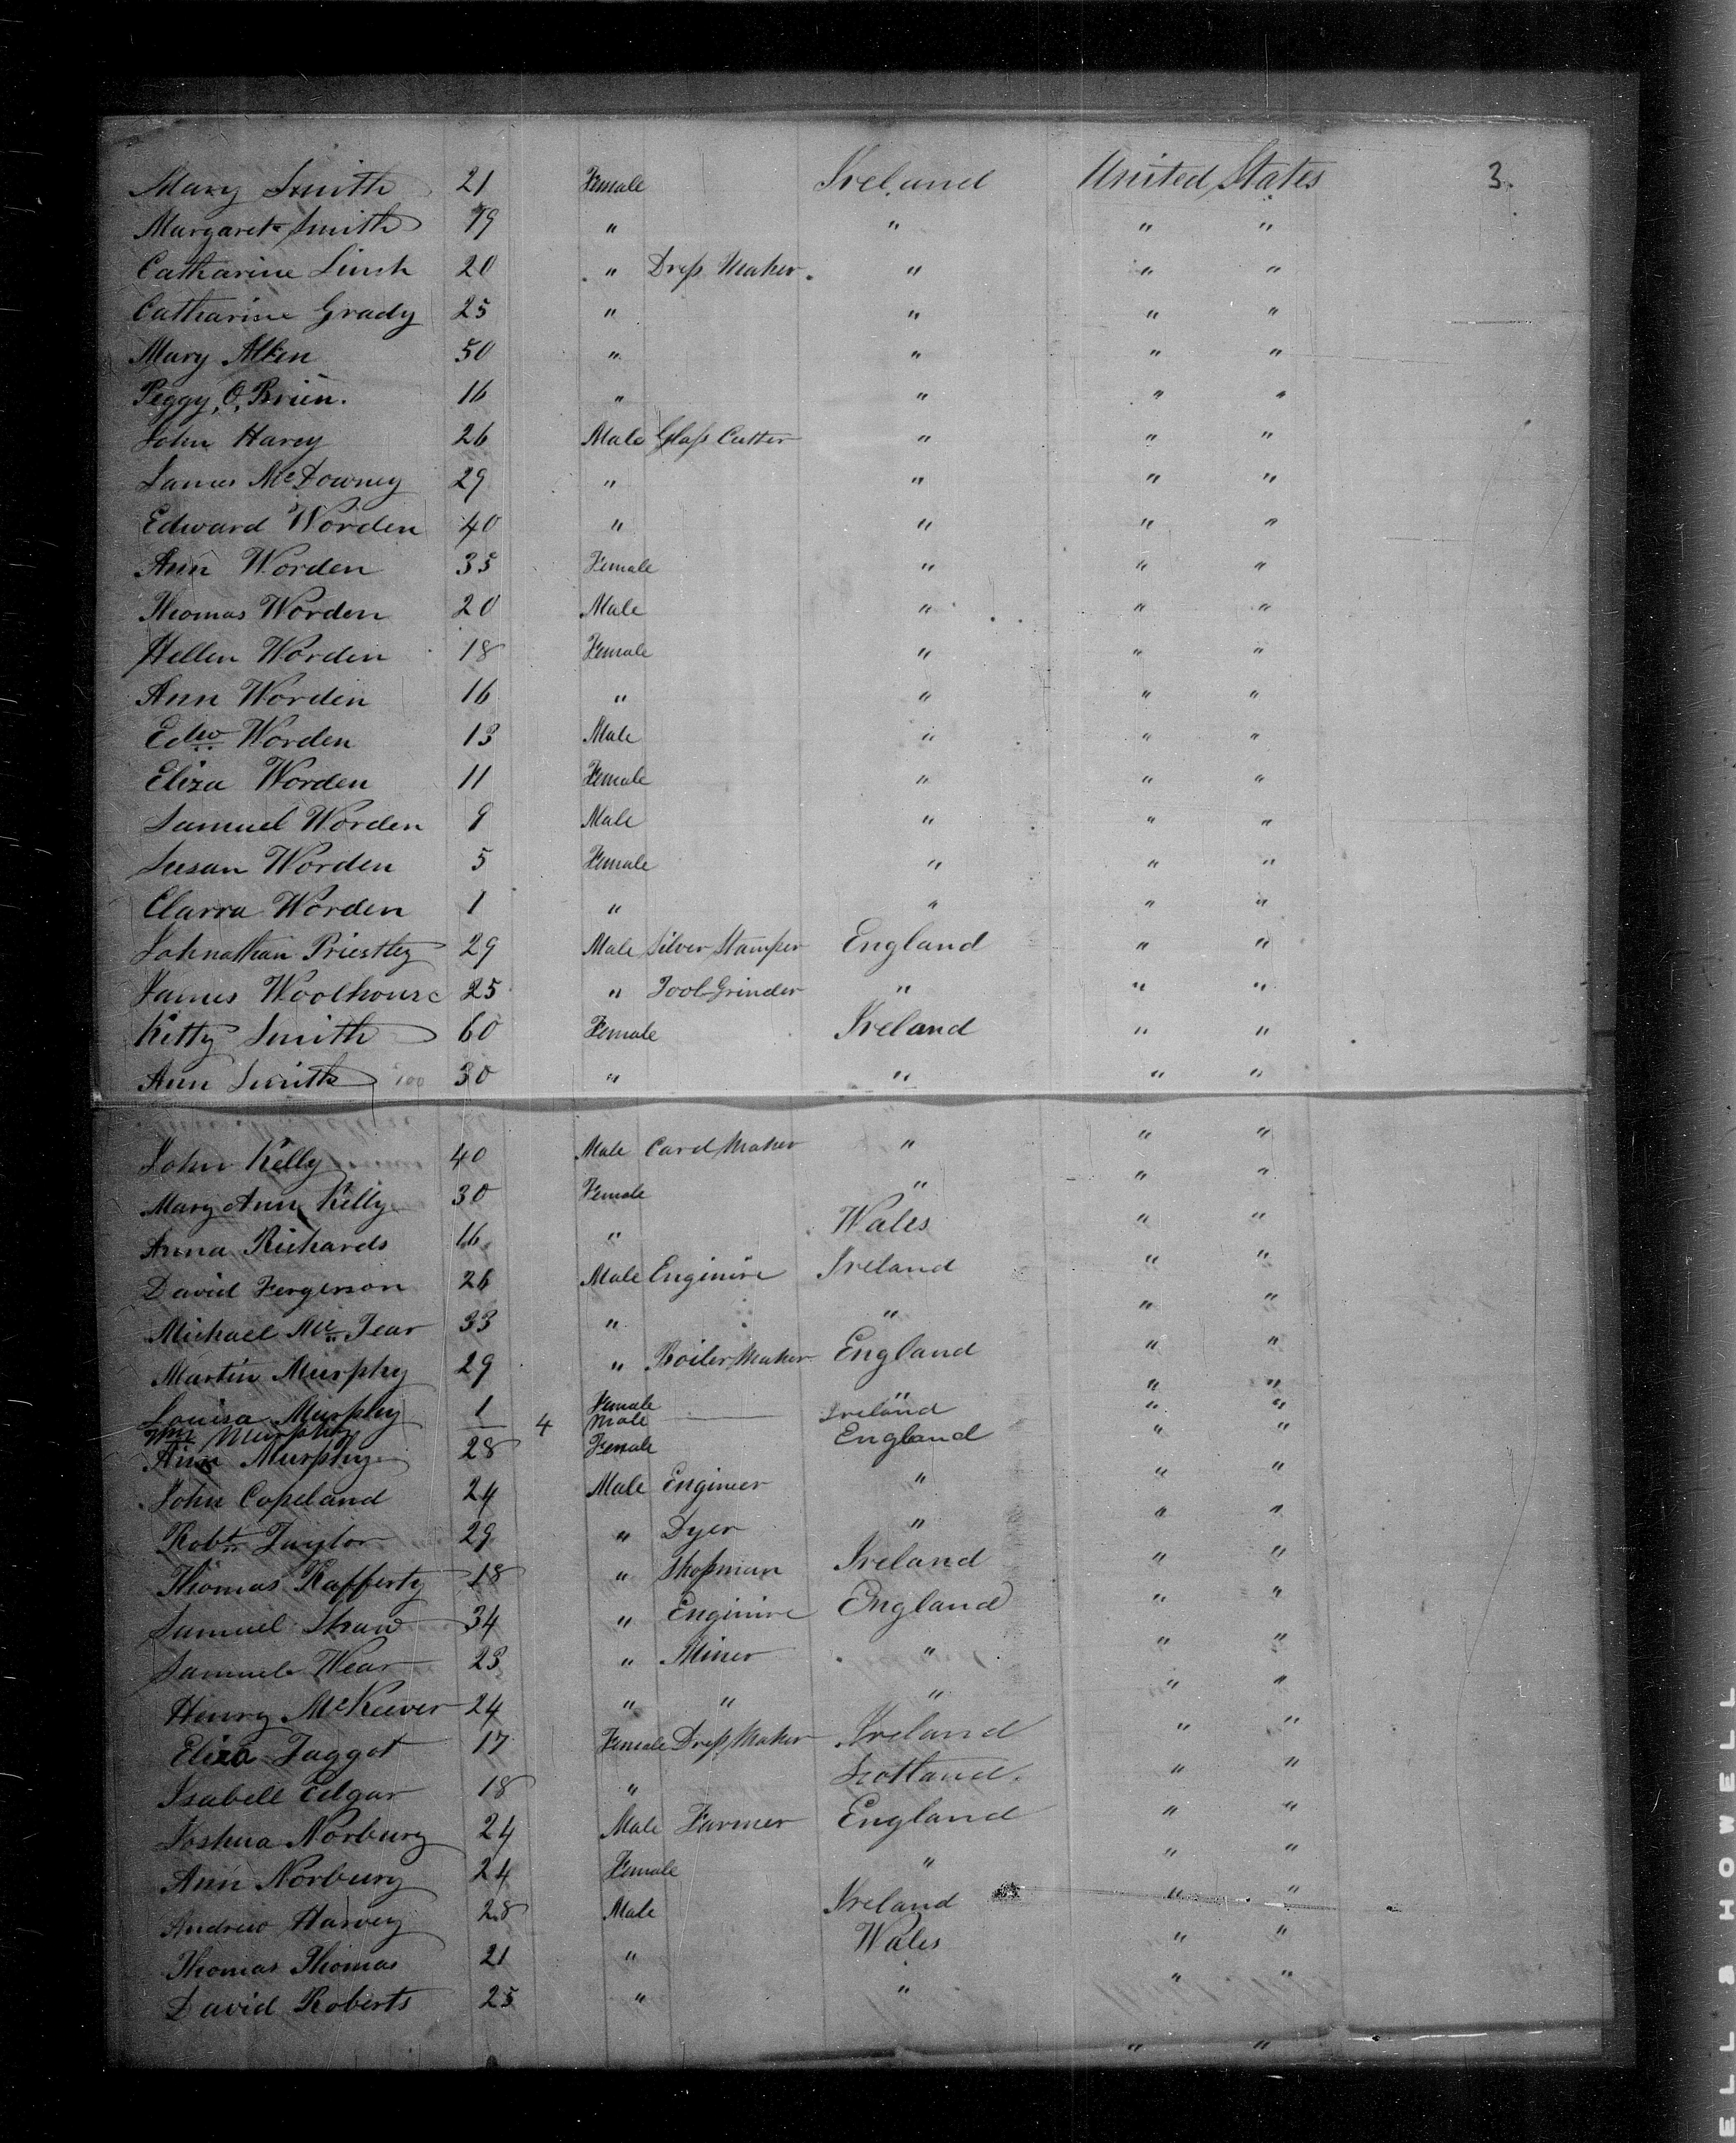 Mary Smith 21 Female Ireland United States 3.
Margaret Smith 19 " " " "
Catharine Linch 20 " Dress Maker " " "
Catharine Grady 25 " " " "
Mary Allen 50 " " " "
Peggy O, Brien. 16 " " " "
John Harey 26 Male Glass Cutter " " "
James McDowney 29 " " " "
Edward Worden 40 " " " "
Ann Worden 35 Female " " "
Thomas Worden 20 Male " " "
Hellen Worden 18 Female " " "
Ann Worden 16 " " " "
Edw Worden 13 Male " " "
Eliza Worden 11 Female " " "
Samuel Worden 9 Male " " "
Susan Worden 5 Female " " "
Clarra Worden 1 " " " "
Johnathan Priestley 29 Male Silver Stamper England " "
James Woolhouse 25 " Tool Grinder " " "
Kitty Smith 60 Female Ireland " "
Ann Smith 30 " " " "
John Kelly 40 Male Card Maker " " "
Mary Ann Kelly 30 Female " " "
Anna Richards 16 " Wales " "
David Fergerson 26 Male Enginire Ireland " "
Michael Mc Tear 33 " " " "
Martin Murphy 29 " Boiler Maker England " "
Louisa Murphy 1 Female " " "
Wm Murphy 4 Male Ireland " "
Ann Murphy 28 Female England " "
John Copeland 24 Male Engineer " " "
Robt Taylor 29 " Dyer " " "
Thomas Rafferty 18 " Shopman Ireland " "
Samuel Shaw 34 " Enginire England " "
Samuel Wear 23 " Miner " " "
Henry McKeever 24 " " " " "
Eliza Taggot 17 Female Dress Maker Ireland " "
Isabell Edgar 18 " Scotland. " "
Joshua Norbury 24 Male Farmer England " "
Ann Norbury 24 Female " " "
Andrew Harvey 28 Male Ireland " "
Thomas Thomas 21 " Wales " "
David Roberts 25 " " " "
" "
ELL & HOWELL